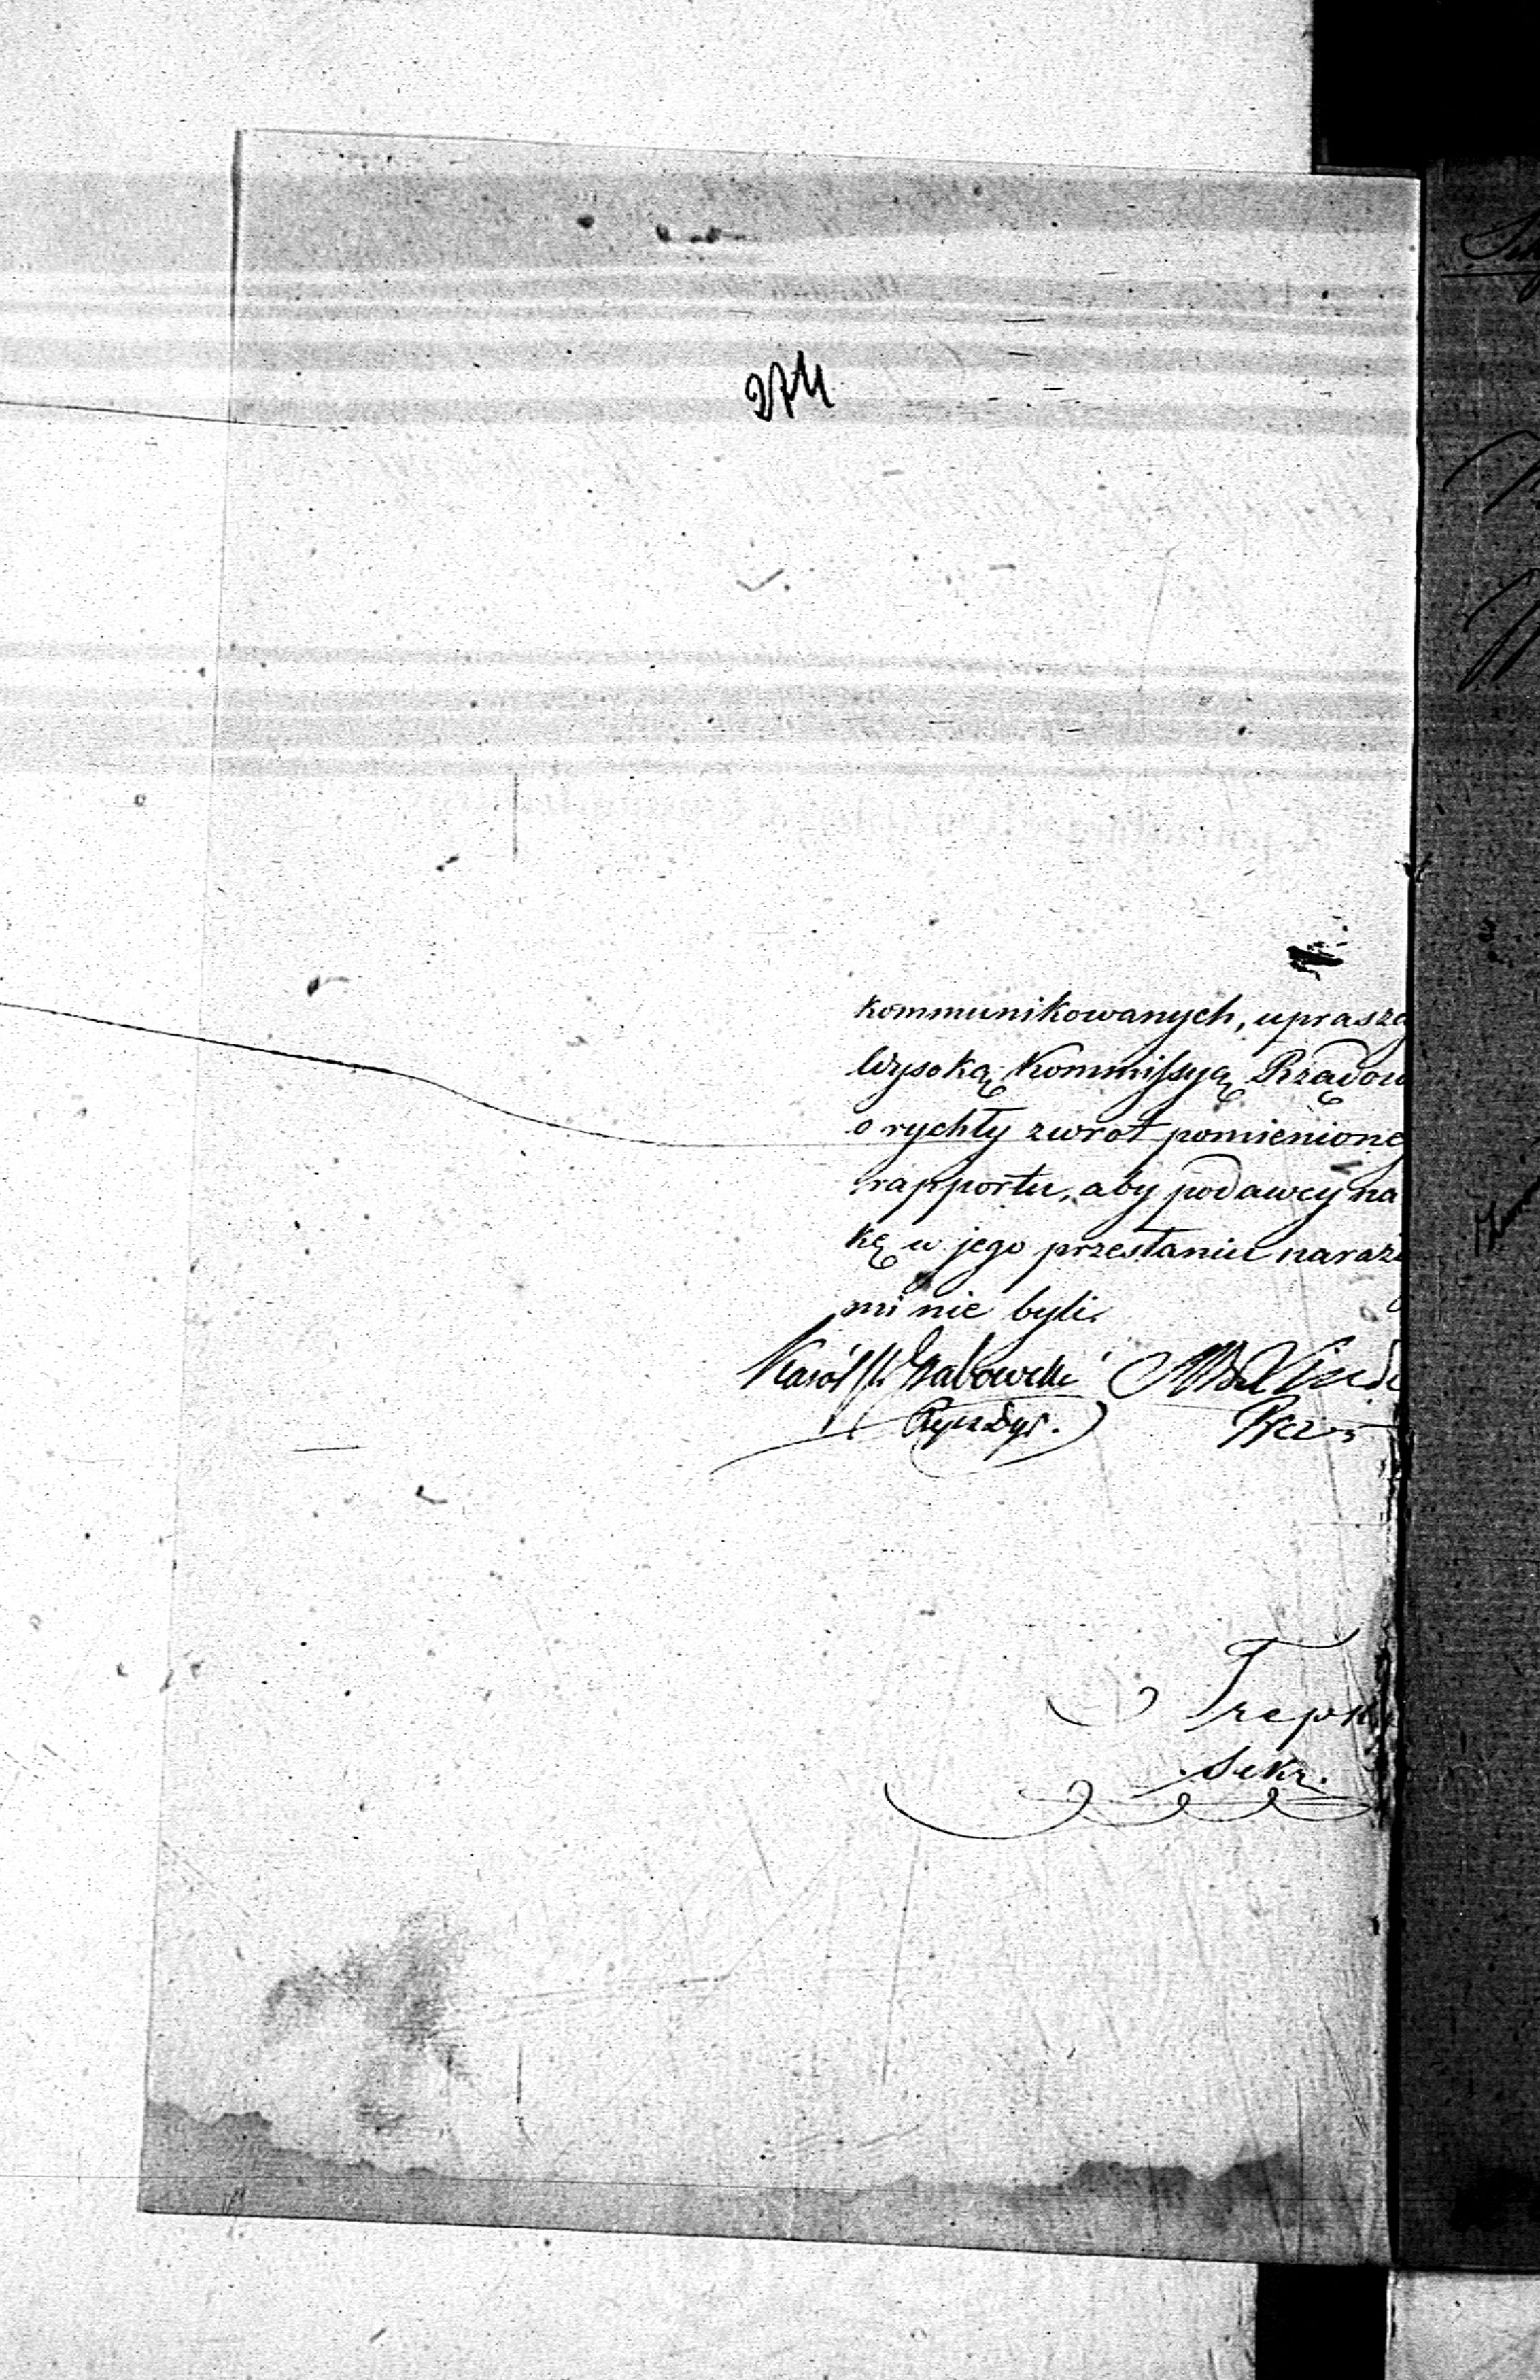 274
kommunikowanych, uprasza
Wysoką Kommissyą Rządow
o rychły zwrot pomienione
rapportu, aby podawcy na
kę w jego przesłaniu narażo
mi nie byli.
Karól Grabowski
Trepk
Sekr.